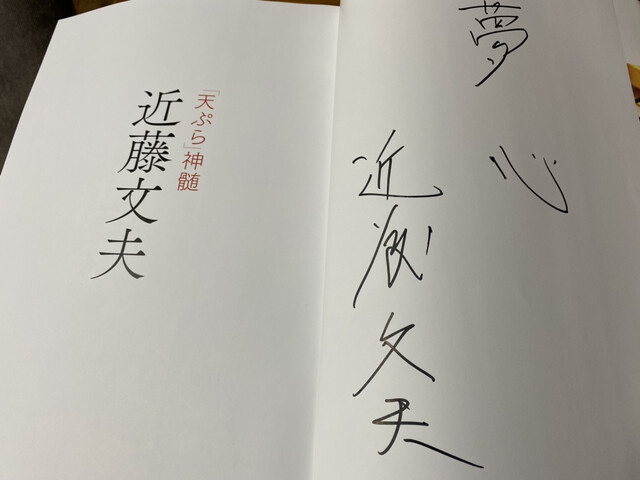 「天ぷら」神髄
近藤文夫
夢
心
近藤文夫